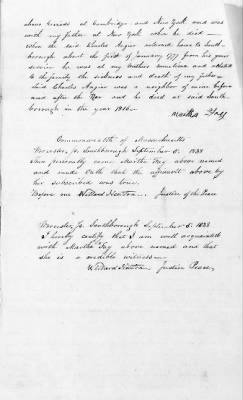 above named at Cambridge and New York and was
with my father at New York when he died —
When the said Charles Angier returned home to South-
borough about the first of January 1777 from his years
service he was at my Mothers house and related
to the family the sickness and death of my father —
Said Charles Angier was a neighbor of mine before
and after the War and he died at said South-
borough in the year 1816 —
Martha Fay
Commonwealth of Massachusetts
Worcester, ss. Southborough September 5. 1838
Then personally came Martha Fay above named
and made Oath that the affidavit above by
her subscribed was true.
Before me Willard Newton. Justice of the Peace
Worcester, ss. Southborough September 5. 1838
I hereby certify that I am well acquainted
with Martha Fay above named and that
she is a credible witness —
Willard Newton Justice Peace.